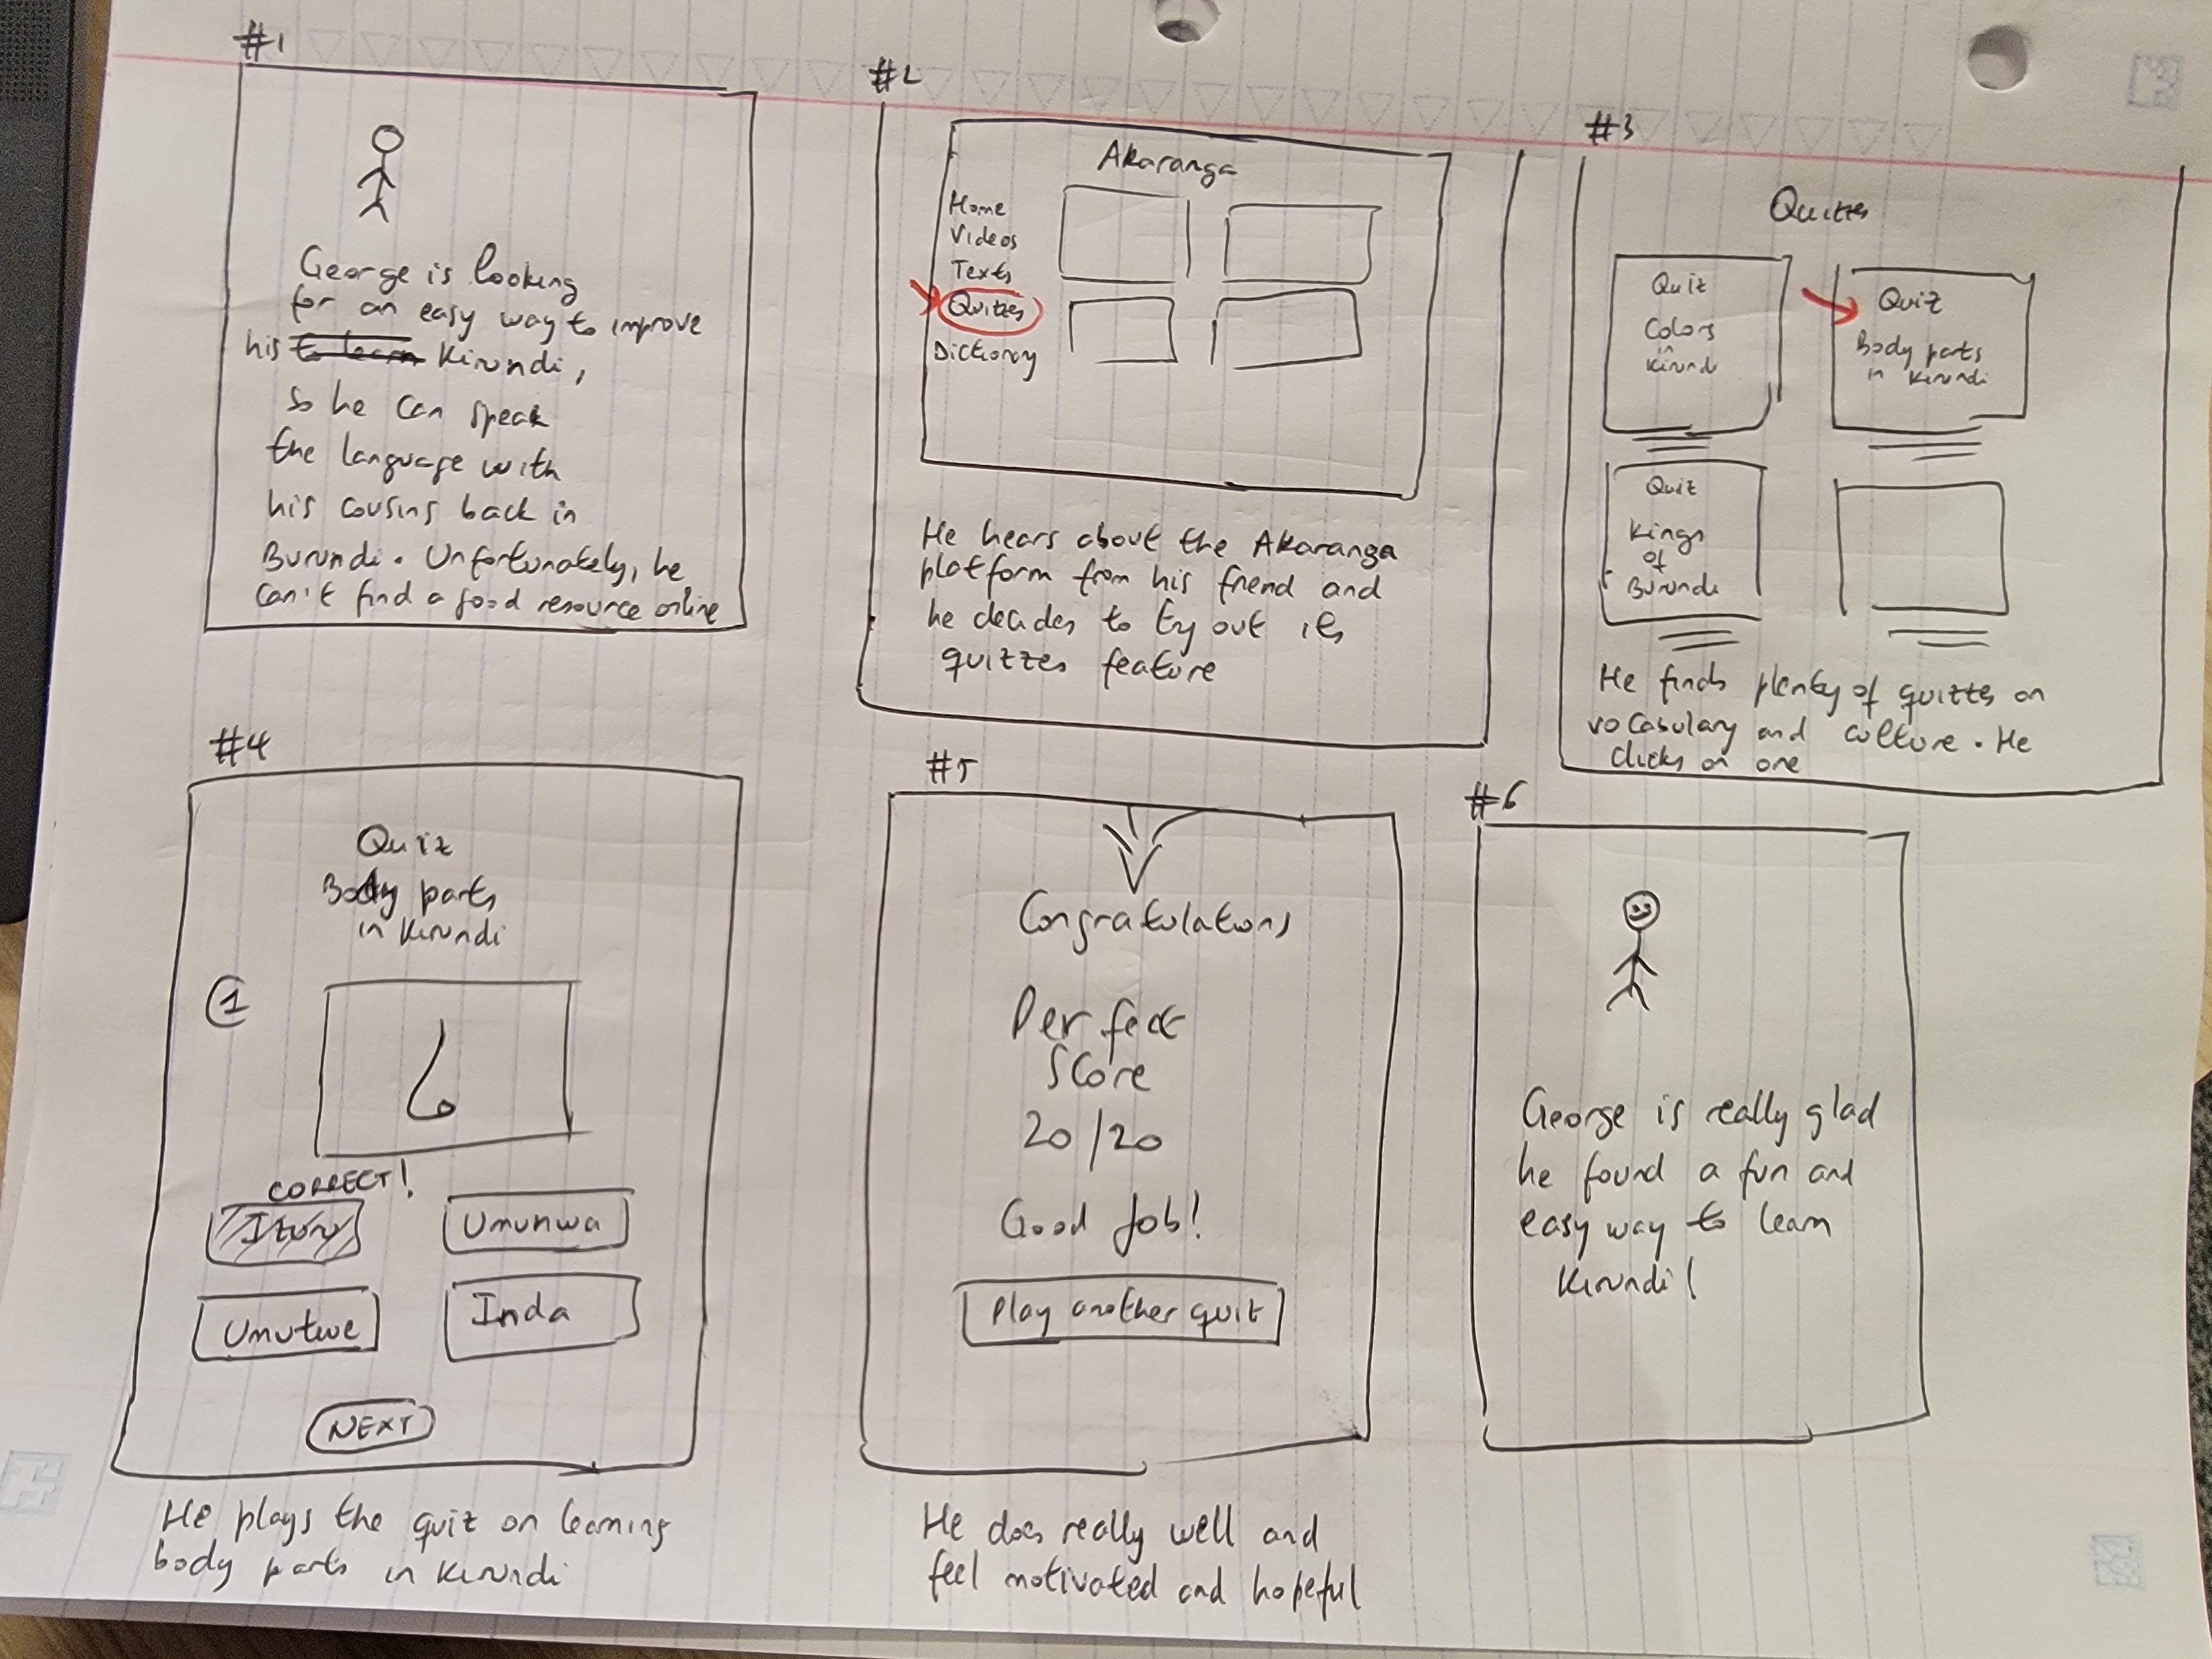 #1
George is looking
for an easy way to improve
his to learn Kirundi,
so he can speak
the language with
his cousins back in
Burundi. Unfortunately, he
can't find a good resource online
#2
Akaranga
Home
Videos
Texts
Quizzes
Dictionary
He hears about the Akaranga
platform from his friend and
he decides to try out its
quizzes feature
#3
Quizzes
Quiz
Colors
in
Kirundi
Quiz
Body parts
in Kirundi
Quiz
Kings
of
Burundi
He finds plenty of quizzes on
vocabulary and culture. He
clicks on one
#4
Quiz
Body parts
in Kirundi
1
CORRECT!
Umunwa
Umutwe
Inda
NEXT
He plays the quiz on learning
body parts in Kirundi
#5
Congratulations
Perfect
Score
20/20
Good Job!
Play another quiz
He does really well and
feel motivated and hopeful
#6
George is really glad
he found a fun and
easy way to learn
Kirundi!